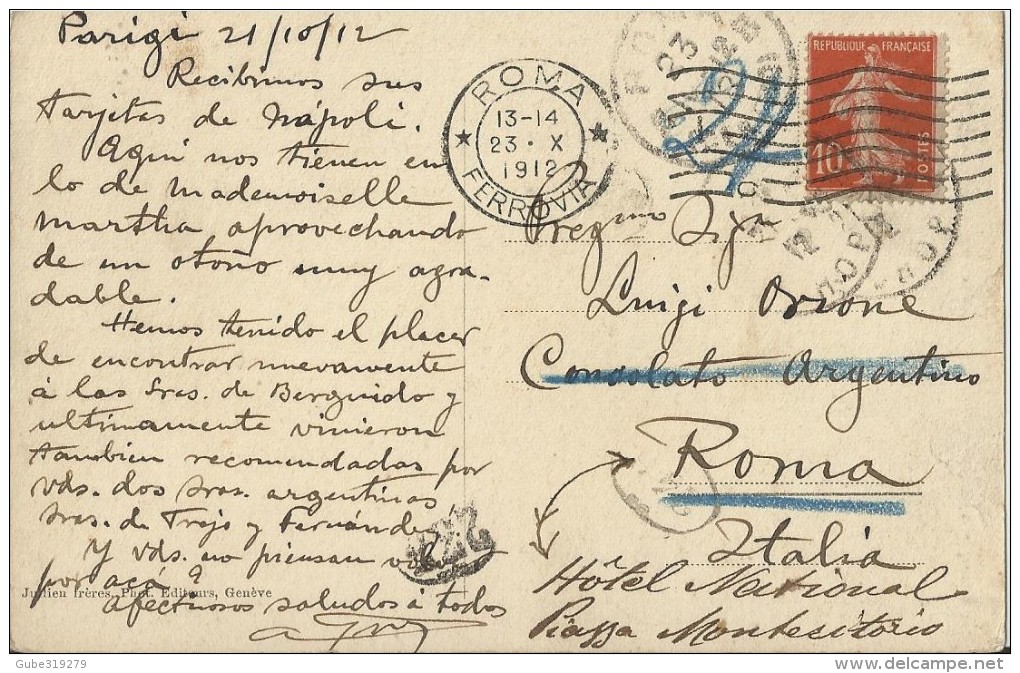 Parigi 21/10/12
Recibimos sus
tarjetas de Nápoli.
Aqui nos tienen en
lo de mademoiselle
Martha, aprovechando
de un otoño muy agra-
dable.
Hemos tenido el placer
de encontrar nuevamente
á las Sras. de Berguido y
ultimamente vinieron
tambien recomendadas por
vds. dos sras. argentinas
sras. de Trejo y Fernández
Y vds. no piensan
por acá?
Afectuosos saludos á todos
Jullien frères, Phot. Editeurs, Genève
ROMA
13-14
23 · X
1912
FERROVIA
REPUBLIQUE FRANÇAISE
10
POSTES
Preg.mo Sig.
Luigi Orione
Consolato Argentino
Roma
Italia
Hôtel National
Piazza Montecitorio
Gube319279
delcampe.net